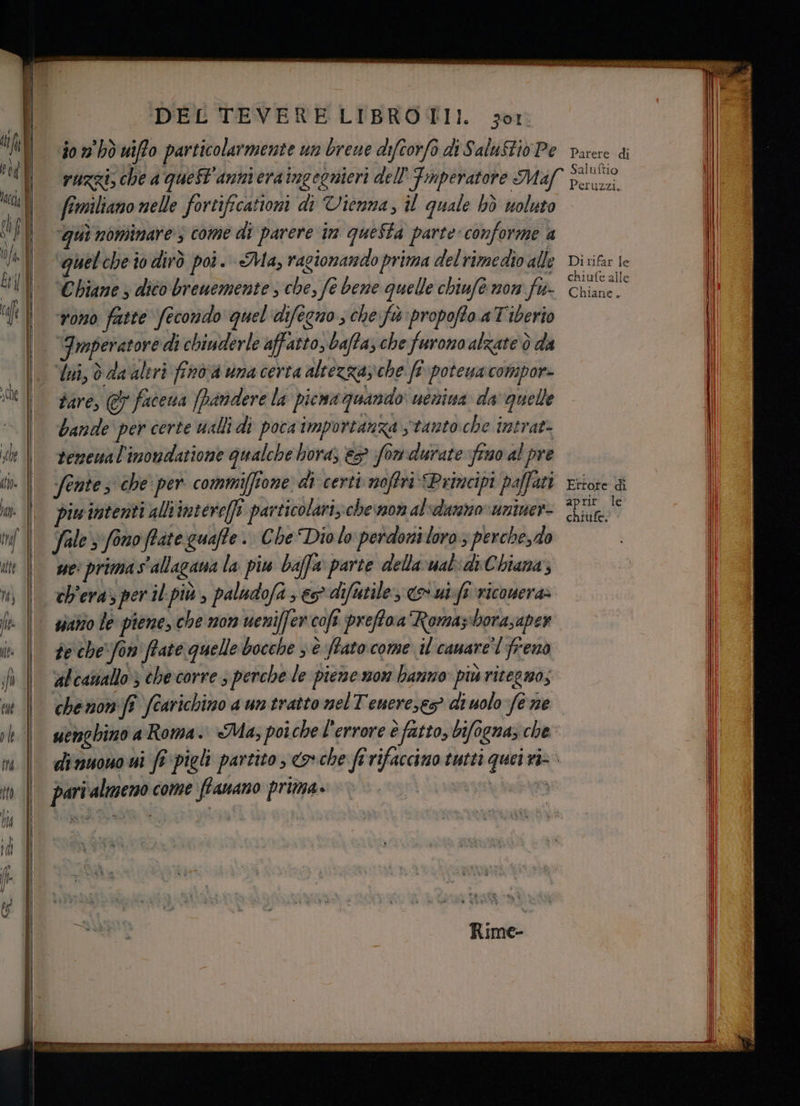 DEL TEVERE LIBRO III. 301
io n'hò uisto particolarmente un breue discorso di Salustio Pe
ruzzi, che a quest'anni era ingegnieri dell'Imperatore Mas
similiano nelle fortificationi di Vienna, il quale hò uoluto
qui nominare, come di parere in questa parte conforme a
quel che io dirò poi. Ma, ragionando prima del rimedio alle
Chiane, dico breuemente, che, se bene quelle chiuse non fu-
rono fatte secondo quel disegno, che fù proposto a Tiberio
Imperatore di chiuderle affatto, basta, che furono alzate ò da
lui, ò da altri fino a una certa altezza, che si poteua compor-
tare, & faceua spandere la piena quando ueniua da quelle
bande per certe ualli di poca importanza, tanto che intrat-
teneua l'inondatione qualche hora, & son durate fino al pre
sente, che per commissione di certi nostri Principi passati
piu intenti alli interessi particolari, che non al danno uniuer-
sale, sono state guaste. Che Dio lo perdoni loro, perche, do
ue prima s'allagaua la piu bassa parte della ual di Chiana,
ch'era, per il più, paludosa, & disutile, & ui si ricouera-
uano le piene, che non uenisser cosi presto a Roma, hora, aper
te che son state quelle bocche, è stato come il cauare'l freno
al cauallo, che corre, perche le piene non hanno più ritegno,
che non si scarichino a un tratto nel Teuere, & di uolo se ne
uenghino a Roma. Ma, poiche l'errore è fatto, bisogna, che
di nuouo ui si pigli partito, & che si rifaccino tutti quei ri-
pari almeno come stauano prima.
Rime-
Parere di
Salustio
Peruzzi.
Di rifar le
chiuse alle
Chiane.
Errore di
aprir le
chiuse.